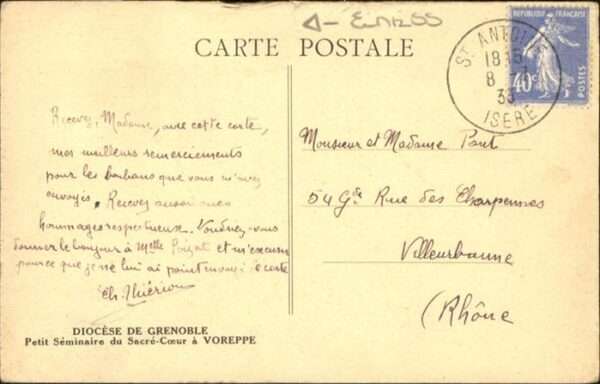 CARTE POSTALE
Recevez, Madame, avec cette carte,
mes meilleurs remerciements
pour les bonbons que vous m'avez
envoyés. Recevez aussi mes
hommages respectueux. Voudriez-vous
donner le bonjour à Melle et m'excuser
parce que je ne lui ai point envoyé de carte
Ch. Thiérion
DIOCÈSE DE GRENOBLE
Petit Séminaire du Sacré-Cœur à VOREPPE
REPUBLIQUE FRANÇAISE
40c
POSTES
ST ANTOINE
18
8
ISERE
Monsieur et Madame Pont
54 Gde Rue des Charpennes
Villeurbanne
(Rhône